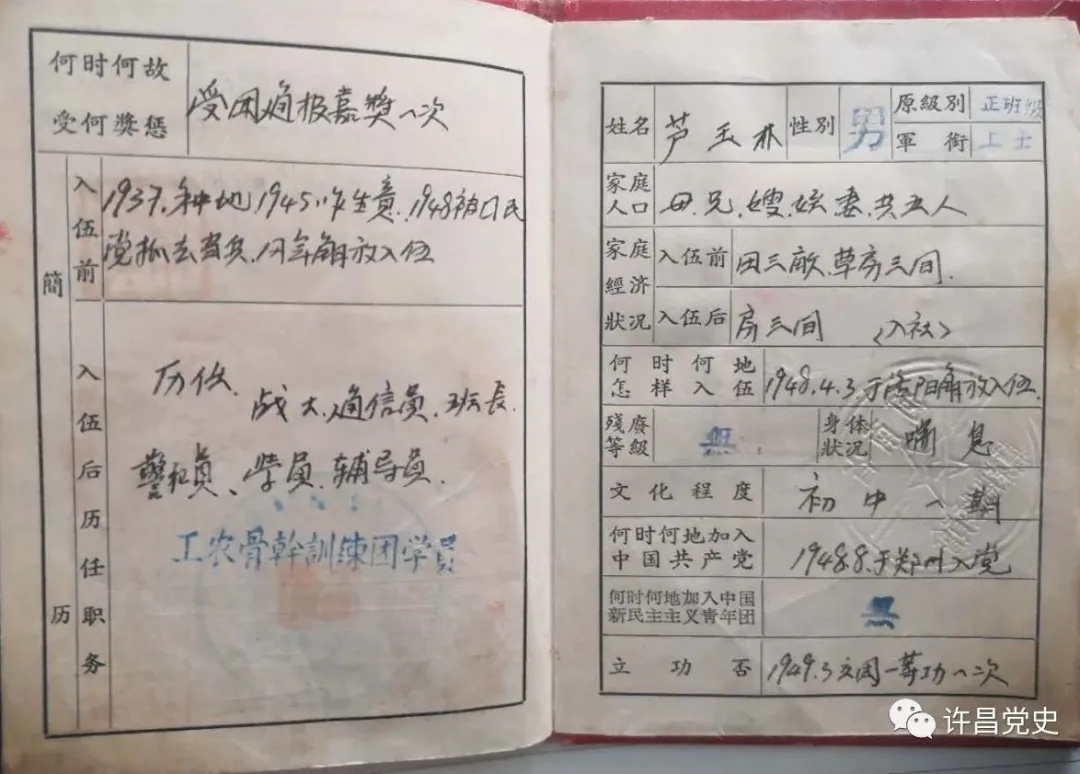 何时何故
受何獎惩
受团通报嘉獎一次
簡历
入伍前
1937.种地,1945.作生意,1948被口民
党抓去当兵,同年解放入伍
入伍后历任职务
历任
战士,通信员,班长.
警卫员、学员、辅导员.
工农骨幹訓練团学員
姓名
芦玉林
性別
男
原級別
正班級
軍銜
上士
家庭
人口
母,兄,嫂,妻,共五人
家庭
經济
狀况
入伍前
田三畝,草房三间.
入伍后
房三间 (入社)
何时何地
怎样入伍
1948.4.3.于洛阳解放入伍.
殘廢
等級
無
身体
狀况
喘息
文化程度
初中一期
何时何地加入
中国共产党
1948.8.于郑州入党
何时何地加入中国
新民主主义青年团
無
立功否
1949.3立团一等功一次
许昌党史